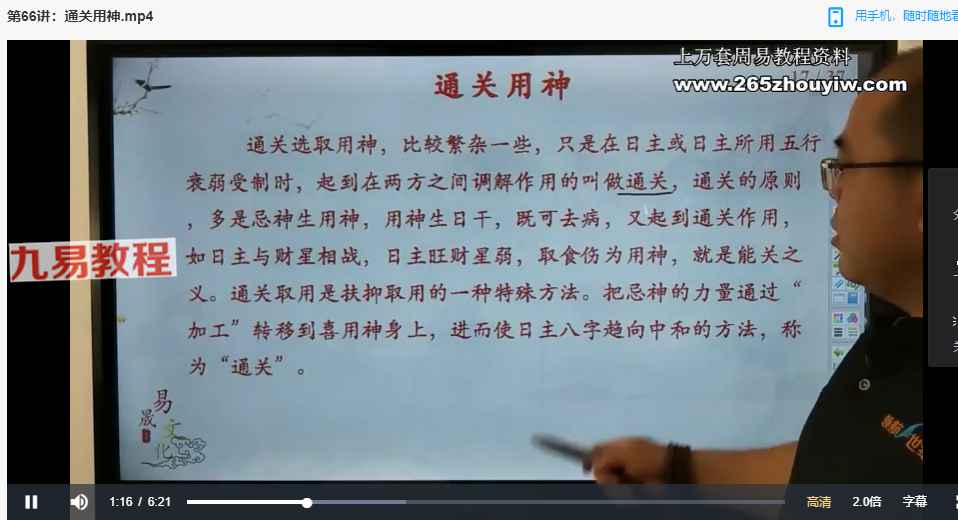 第66讲：通关用神.mp4
用手机，随时随地看
上万套周易教程资料
17 / 37
www.265zhouyiw.com
通关用神
通关选取用神，比较繁杂一些，只是在日主或日主所用五行
衰弱受制时，起到在两方之间调解作用的叫做通关，通关的原则
，多是忌神生用神，用神生日干，既可去病，又起到通关作用，
如日主与财星相战，日主旺财星弱，取食伤为用神，就是能关之
义。通关取用是扶抑取用的一种特殊方法。把忌神的力量通过“
加工”转移到喜用神身上，进而使日主八字趋向中和的方法，称
为“通关”。
九易教程
易
晟
文
化
领航
1:16 / 6:21
高清
2.0倍
字幕